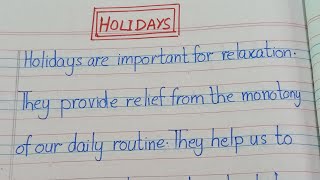 HOLIDAYS
Holidays are important for relaxation.
They provide relief from the monotony
of our daily routine. They help us to